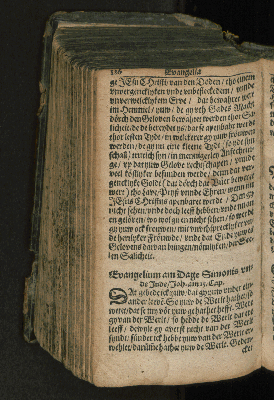 Evangelia
ge JEsu Christi, van den Doden, tho einem
unvorgencklyken unde unbefleckedem, unde
unvorwelcklykem Erve, dat bewahret wert
im Hemmel, yuw, de gy uth Gades Macht
dörch den Geloven bewahret werden thor Sa
licheit, de dar bereydet ys, dat se apenbahr werde
thor lesten Tydt, in welckerer gy yuw frouwen
werden, de gy nu eine kleine Tydt, so ydt syn
schal, trurich syn, in mennigerley Anfechtin-
ge, up dat yuw Gelove rechtschapen, unde
veel kostlyker befunden werde, denn dat vor-
gencklyke Goldt, dat dörch dat Vuer beweret
wert, tho Lave, Pryß unde Ehren, wenn nu
JEsus Christus apenbaret werdt, Den gy
nicht sehen, unde doch leeff hebben, unde nu an
en gelöven, wo wol gy en nicht sehen, so werde
gy yuw ock frouwen, mit unuthsprecklyker un-
de herrlyker Fröuwde, unde dat Ende yuwes
Gelovens darvan bringen, nömlyken, der See-
len Salicheit.
Evangelium am Dage Simonis un-
de Jude, Joh. am 15. Cap.
DAt gebede ick yuw, dat gy yuw under ein-
ander leevet. So yuw de Werlt hathet, so
wetet, dat se my vör yuw gehathet hefft. Weret
gy van der Werlt, so hedde de Werlt dat ere
leeff, dewyle gy averst nicht van der Werlt
synde, sünder ick hebbe yuw van der Werlt er-
wehlet, darümme hathet yuw de Werlt. Gedenc-
cket